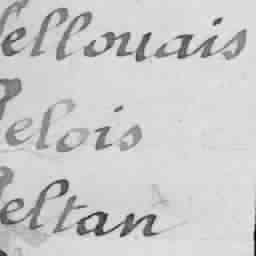 Pellouais
Pelois
Peltan